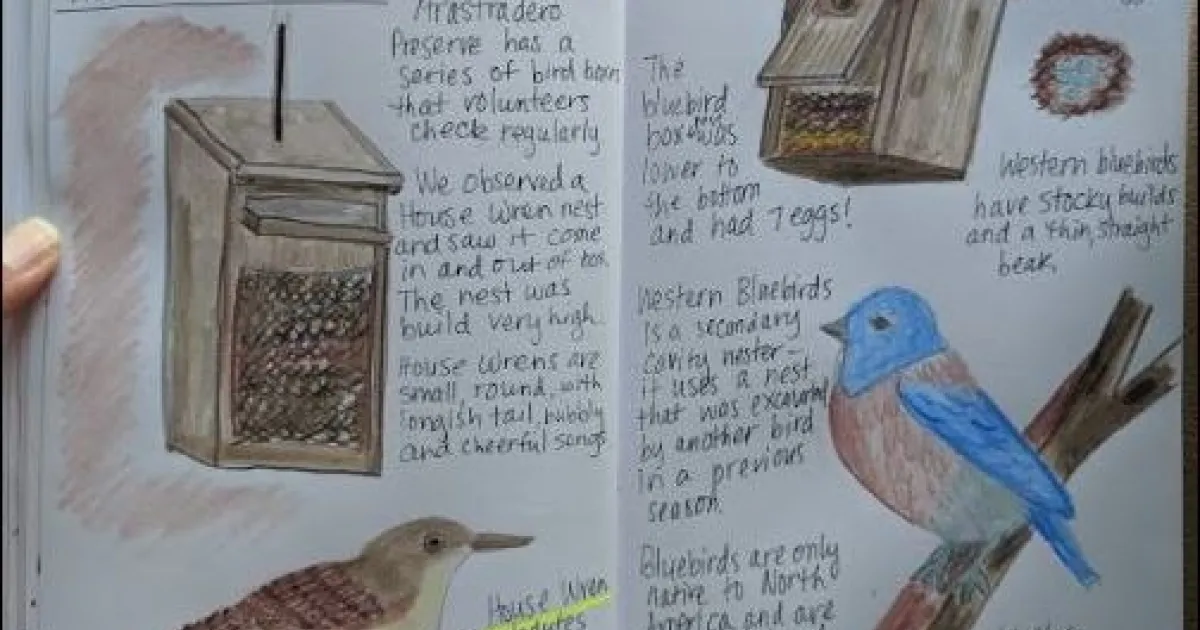 Arastradero
Preserve has a
series of bird boxes
that volunteers
check regularly
We observed a
House Wren nest
and saw it come
in and out of box.
The nest was
build very high.
House Wrens are
small, round, with
longish tail, bubbly
and cheerful songs
House Wren
The
bluebird
box was
lower to
the bottom
and had 7 eggs!
Western bluebirds
have stocky builds
and a thin, straight
beak.
Western Bluebirds
is a secondary
cavity nester-
it uses a nest
that was excavated
by another bird
in a previous
season.
Bluebirds are only
native to North
America and are